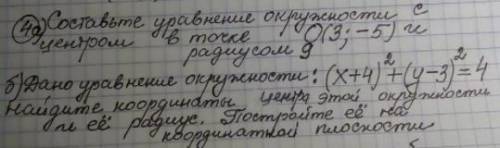 4а) Составьте уравнение окружности с
центром в точке O(3;-5) и
радиусом 9
б) Дано уравнение окружности: (x+4)²+(y-3)²=4
Найдите координаты центра этой окружности
и её радиус. Постройте её на
координатной плоскости